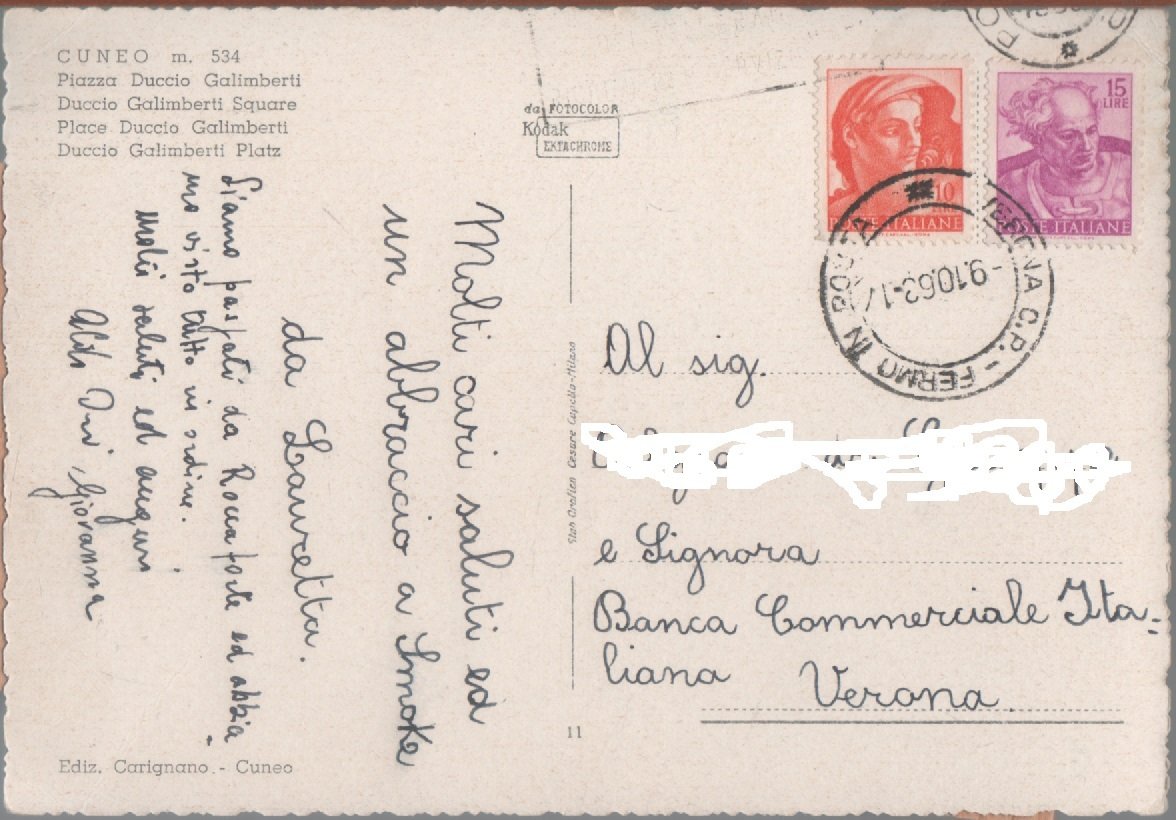 CUNEO m. 534
Piazza Duccio Galimberti
Duccio Galimberti Square
Place Duccio Galimberti
Duccio Galimberti Platz
da FOTOCOLOR
Kodak
EKTACHROME
10
POSTE ITALIANE
15
LIRE
POSTE ITALIANE
VERONA C.P. - FERMO IN POSTA
-9.10.63-1
Molti cari saluti ed
un abbraccio a Smoke
da Lauretta.
Siamo passati da Roccaforte ed abbia-
mo visto tutto in ordine.
Molti saluti ed auguri
Giovanna
Al sig.
e Signora
Banca Commerciale Ita-
liana
Verona.
11
Ediz. Carignano - Cuneo